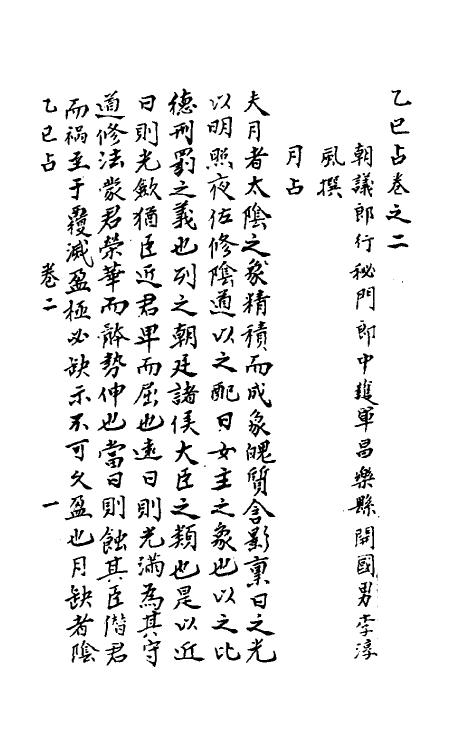 乙巳占卷之二
朝議郎行秘閣郎中護軍昌樂縣開國男李淳
風撰
月占
夫月者太陰之象精積而成象魄質含影稟日之光
以明照夜佐修陰道以之配日女主之象也以之比
德刑罰之義也列之朝廷諸侯大臣之類也是以近
日則光歛猶臣近君卑而屈也遠日則光滿為其守
道修法蒙君榮華而體勢伸也當日則蝕其臣僣君
而禍至于覆滅盈極必缺示不可久盈也月缺者陰
乙巳占 卷二 一